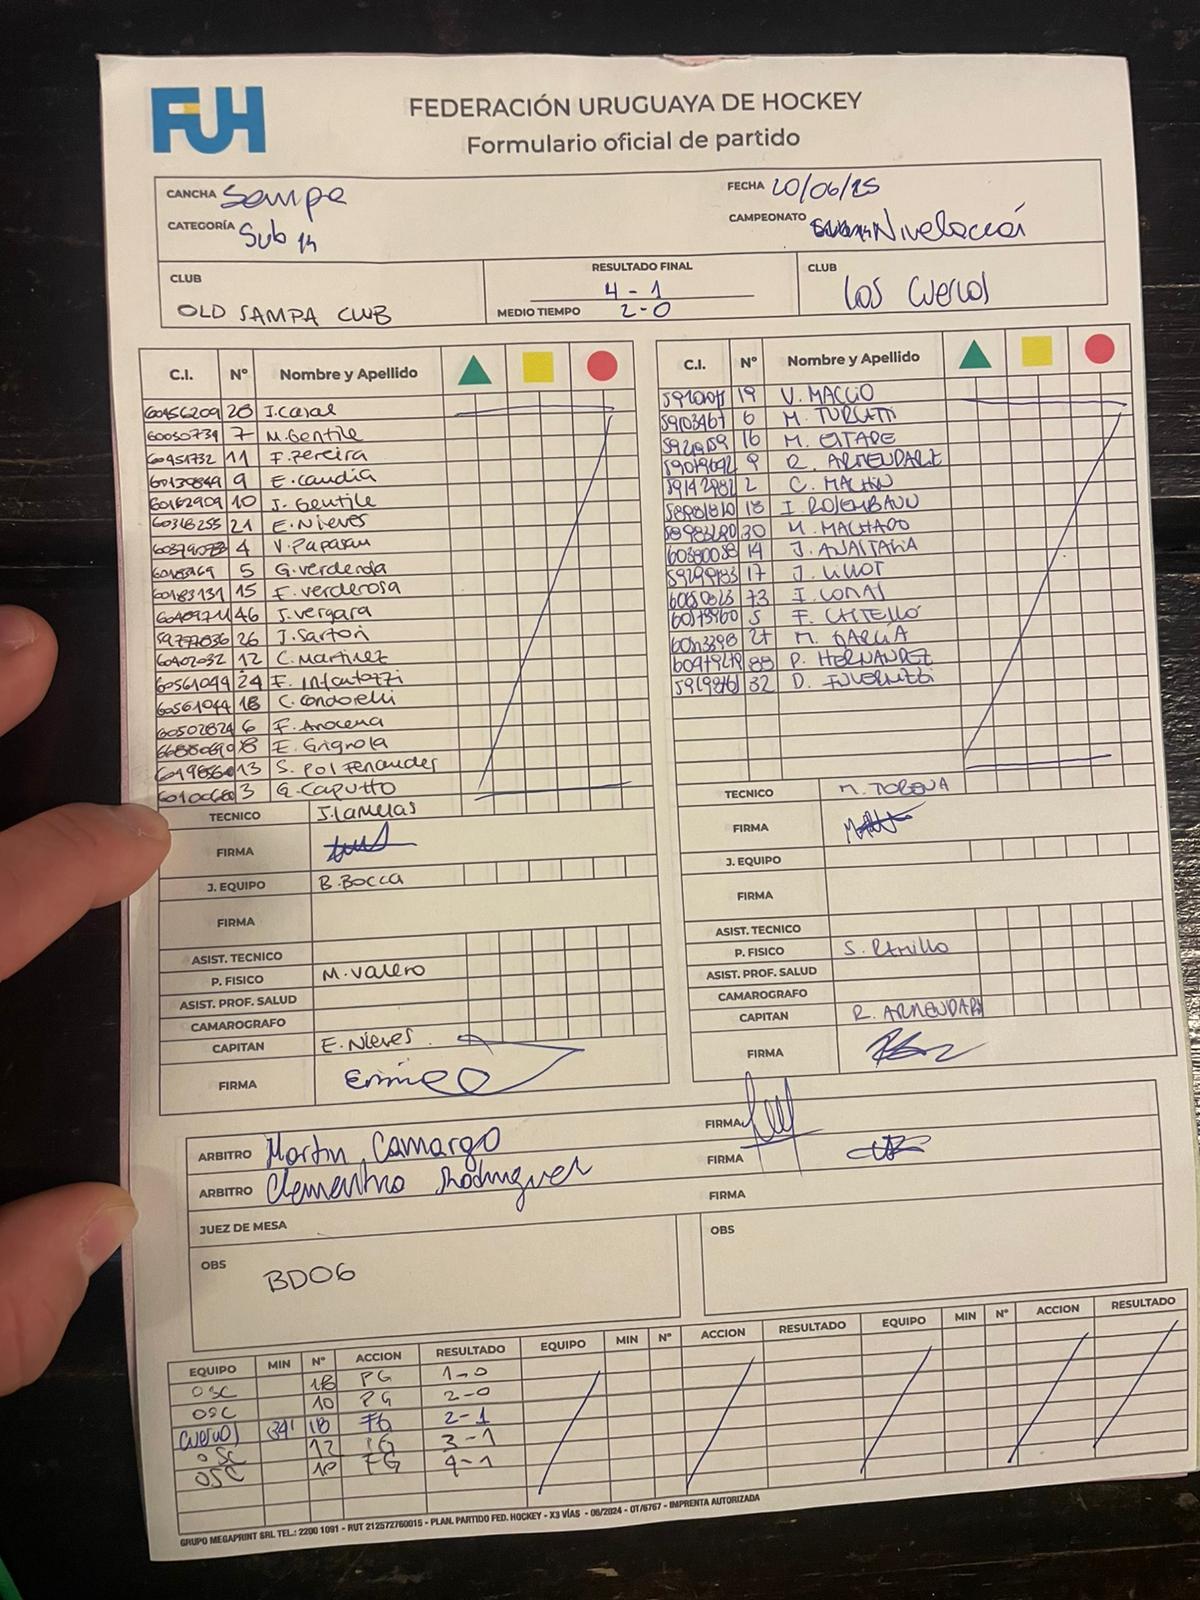 FUH
FEDERACIÓN URUGUAYA DE HOCKEY
Formulario oficial de partido
CANCHA Sampa
FECHA 20/06/25
CATEGORÍA Sub 14
CAMPEONATO Nivelación
CLUB
RESULTADO FINAL
CLUB
OLD SAMPA CLUB
4 - 1
Los Cuervos
MEDIO TIEMPO 2-0
C.I. Nº Nombre y Apellido
60456209 28 J. Casal
60050739 7 M. Gentile
60451732 11 F. Pereira
60139849 9 E. Candia
60162909 10 J. Gentile
60318255 21 E. Nieves
4 V. Papasan
5 G. verderosa
60183131 15 F. verderosa
46 J. vergara
59777036 26 J. Sartori
60402032 12 C. Martinez
60561044 24 F. Infantozzi
60561044 18 C. Condorelli
60502824 6 F. Arocena
E. Grignola
13 S. Pol Fernandez
3 G. Caputto
TECNICO J. Lamelas
FIRMA
J. EQUIPO B. Bocca
FIRMA
ASIST. TECNICO
P. FISICO M. Valero
ASIST. PROF. SALUD
CAMAROGRAFO
CAPITAN E. Nieves
FIRMA
C.I. Nº Nombre y Apellido
19 V. MACCIO
59103467 6 M. TURCATTI
16 M. ESTAPE
9 R. ARMENDARIZ
2 C. MACHIN
18 I. ROSEMBAUN
30 M. MACHADO
60380058 14 J. ANASTASIA
17 J. LILLOT
73 I. COMAS
5 F.
27 M. GARCIA
88 P. HERNANDEZ
32 D. INVERNIZZI
TECNICO M. TORENA
FIRMA
J. EQUIPO
FIRMA
ASIST. TECNICO
P. FISICO S.
ASIST. PROF. SALUD
CAMAROGRAFO
CAPITAN R. ARMENDARI
FIRMA
ARBITRO Martin Camargo FIRMA
ARBITRO Clementino Rodriguez FIRMA
JUEZ DE MESA FIRMA
OBS BD06
OBS
EQUIPO MIN Nº ACCION RESULTADO EQUIPO MIN Nº ACCION RESULTADO EQUIPO MIN Nº ACCION RESULTADO
OSC 18 PG 1-0
OSC 10 PG 2-0
Cuervos 34' 18 FG 2-1
OSC 12 FG 3-1
OSC 10 FG 4-1
GRUPO MEGAPRINT SRL TEL.: 2200 1091 - RUT 212572760015 - PLAN. PARTIDO FED. HOCKEY - X3 VÍAS - 06/2024 - OT/6767 - IMPRENTA AUTORIZADA